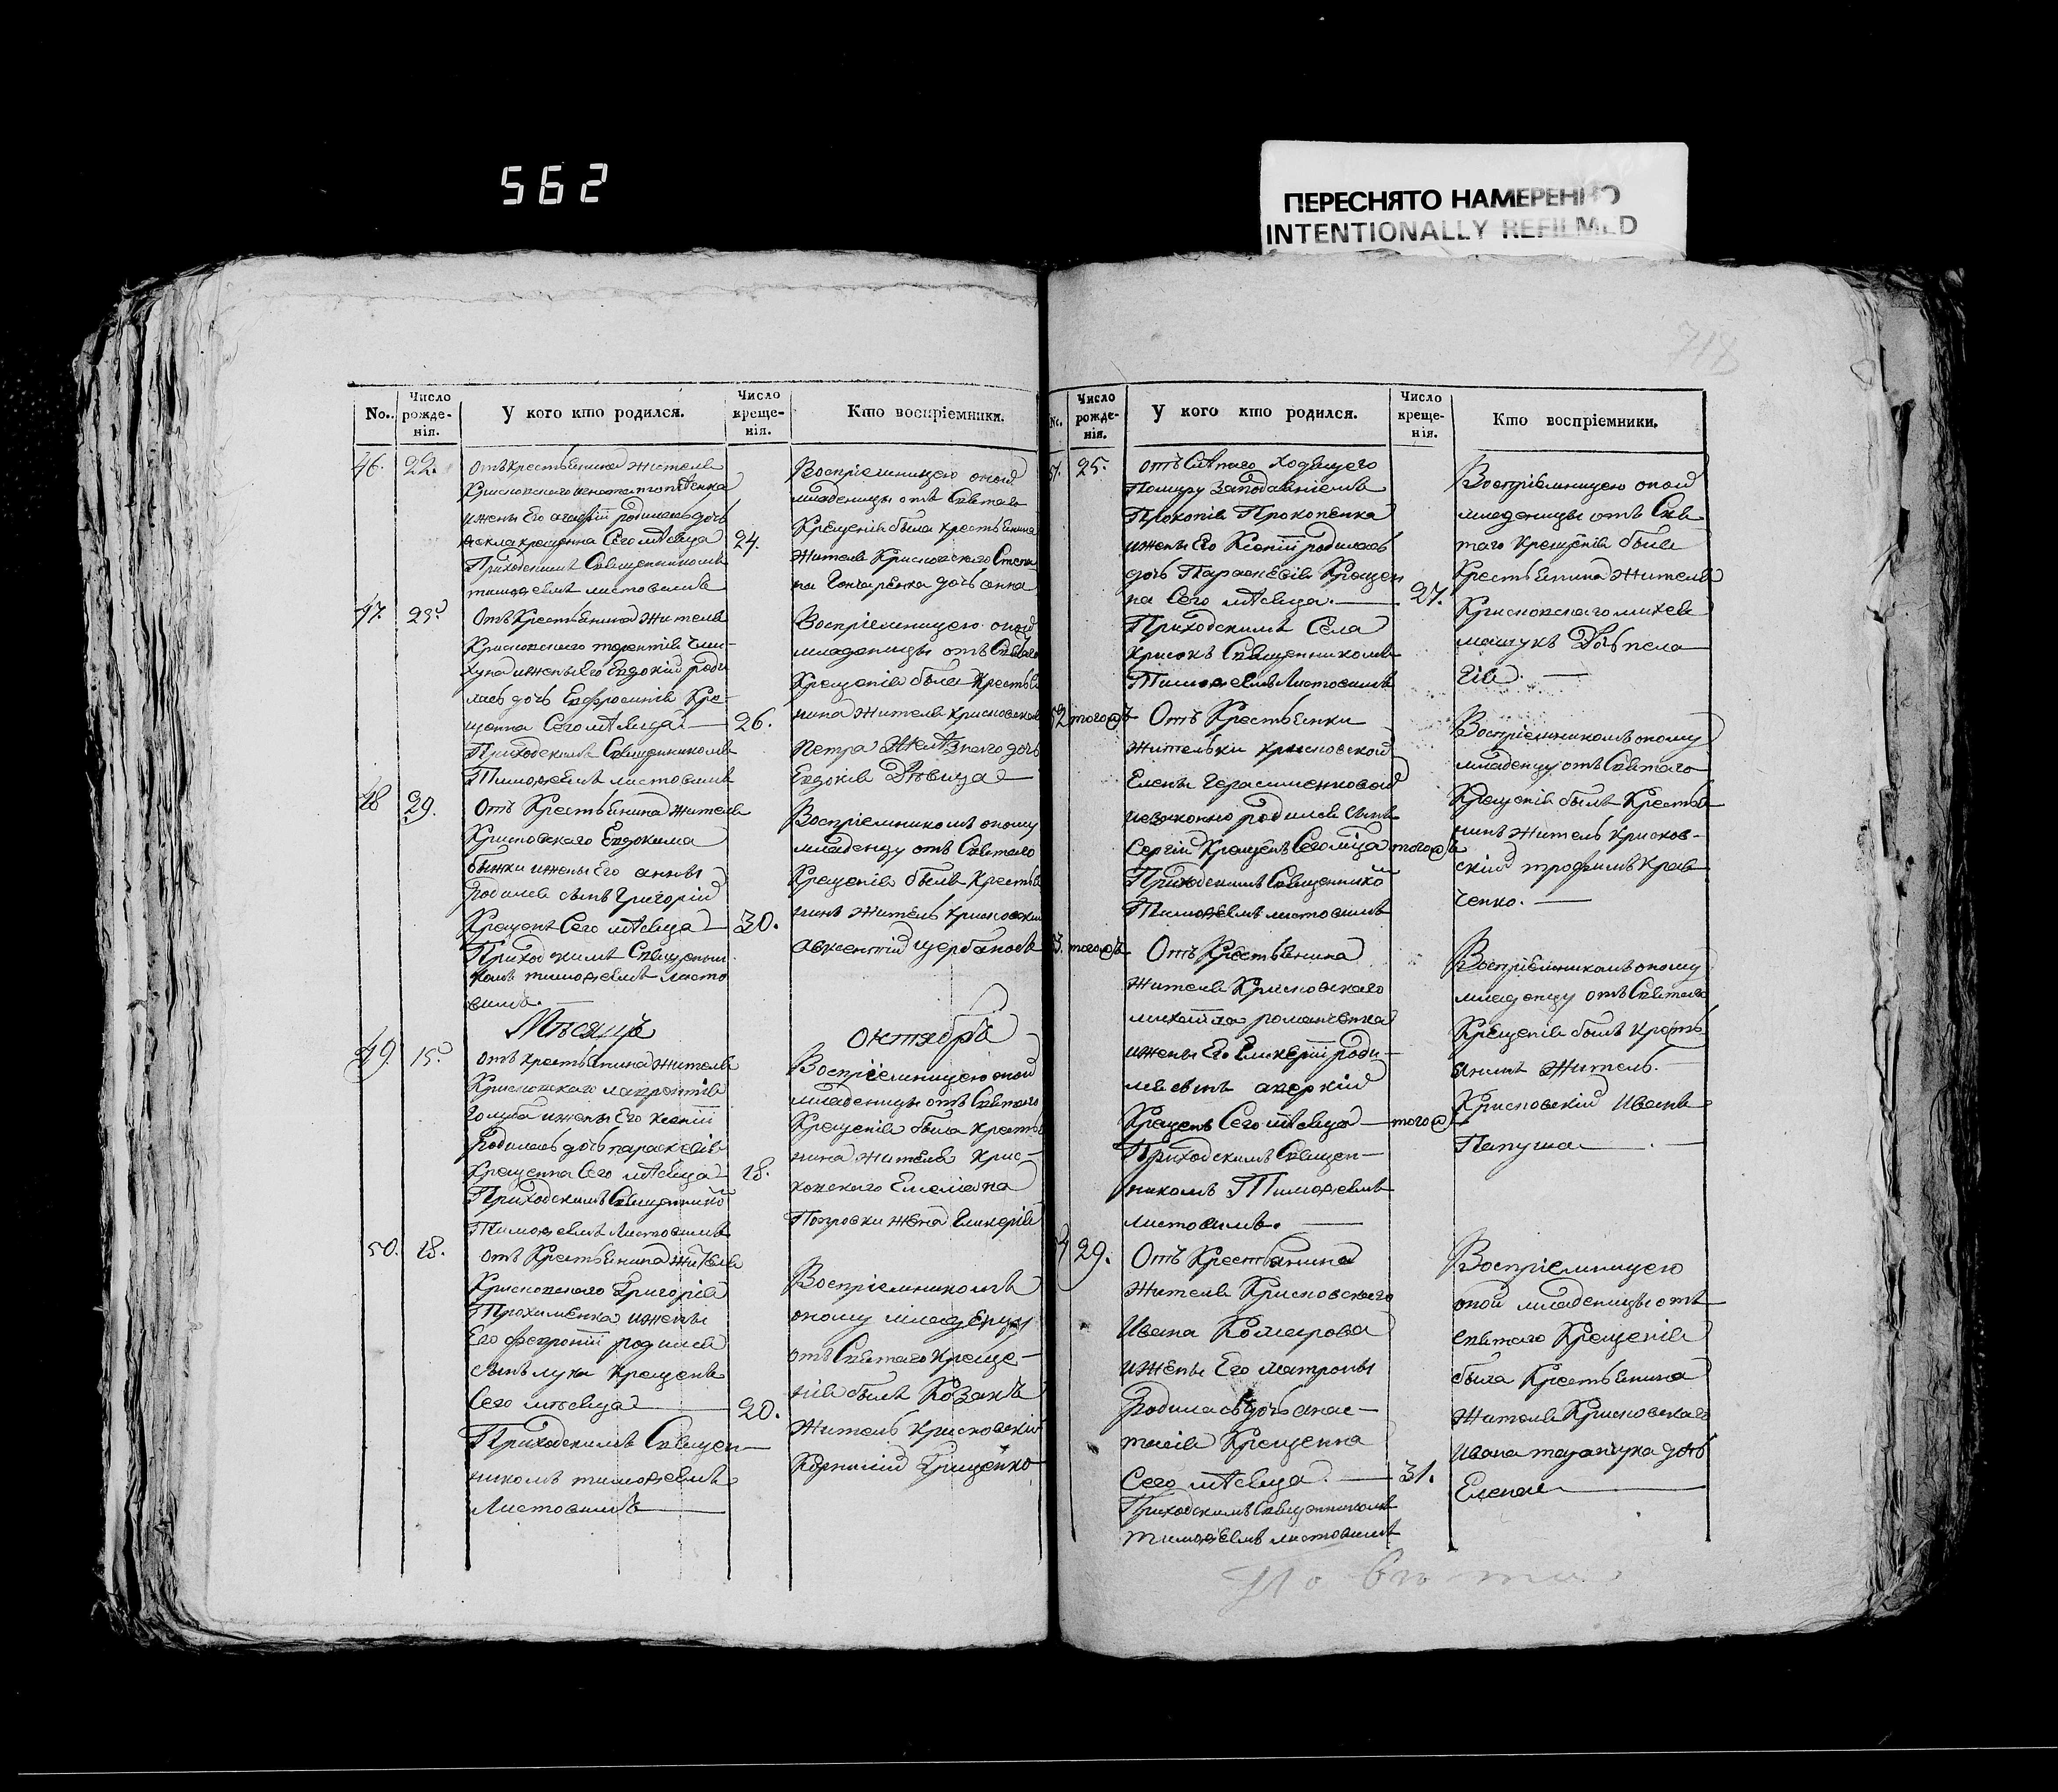 562
ПЕРЕСНЯТО НАМЕРЕННО
INTENTIONALLY REFILMED
718
No. Число рожде-нія. У кого кто родился. Число креще-нія. Кто воспріемники.
46. 22.
отъ крестьянина жителя
Крисковского
и жены Его Агафіи родилась дочь
Фекла крещенна Сего мѣсяца 24.
Приходскимъ Священникомъ
тимофеемъ листовимъ
Воспріемницею оной
младеницы отъ Святаго
Крещенія была крестьянина
жителя Крисковского Степа
на Гончаренка дочь анна
47. 23.
Отъ Крестьянина жителя
Крисковского терентія
и жены Его Евдокіи роди
лась дочь Евфросинія Кре-
щенна Сего мѣсяца 26.
Приходскимъ Священникомъ
Тимофеемъ листовимъ
Воспріемницею оной
младеницы отъ Святаго
Крещенія была Крестья
нина жителя крисковского
Петра дочь
Евдокія Дѣвица
48 29.
Отъ Крестьянина жителя
Крисковского Евдокима
и жены Его анны
Родился сынъ Григорій
Крещенъ Сего мѣсяца 30.
Приходскимъ Священни
комъ тимофеемъ листо
вимъ.
Воспріемникомъ оному
младенцу отъ Святаго
Крещенія былъ Крестья
нинъ житель крисковскій
авксентій щербаковъ
Мѣсяцъ октябрь
49. 15.
отъ крестьянина жителя
Крисковского лаврентія
Голуба и жены Его Ксеніи
Родилась дочь параскевія
Крещенна Сего мѣсяца 18.
Приходскимъ Священнико
Тимофеемъ Листовимъ
Воспріемницею оной
младеницы отъ Святаго
Крещенія была крестья
нина жителя Крис-
ковского Емеліана
жена Гликерія
50. 18.
отъ Крестьянина жителя
Крисковского Григорія
Трохименка и жены
Его февроніи родился
сынъ лука крещенъ
Сего мѣсяца 20.
Приходскимъ Священ-
никомъ тимофеемъ
Листовимъ
Воспріемникомъ
оному младенцу
отъ Святаго Креще-
нія былъ Козакъ
житель Крисковскій
Корнилій Грищенко
No. Число рожде-нія. У кого кто родился. Число креще-нія. Кто воспріемники.
51. 25.
отъ ходящего
Помиру
Прокопія Прокопенка
и жены Его Ксеніи родилась
дочь Параскевія Крещен
на Сего мѣсяца. 27.
Приходскимъ Села
Крисокъ Священникомъ
Тимофеемъ Листовимъ
Воспріемницею оной
младеницы отъ Свя
таго Крещенія была
Крестьянина жителя
Крисковскаго михея
мащука Дочь пела
гія.
52 тогожъ
Отъ Крестьянки
жительки крисковской
Елены Герасименковой
незаконно родился сынъ
Сергій Крещенъ Сего мца тогожъ
Приходскимъ Священнико
Тимофеемъ листовимъ
Воспріемникомъ оному
младенцу отъ Святаго
Крещенія былъ Крестья
нинъ житель Крисков-
скій трофимъ Крав
ченко.
53. тогожъ
Отъ Крестьянина
жителя Крисковскаго
михаила романченка
и жены Его Гликеріи роди-
лся сынъ аверкій
Крещенъ Сего мѣсяца тогож
Приходскимъ Священ-
никомъ Тимофеемъ
листовимъ.
Воспріемникомъ оному
младенцу отъ Святаго
Крещенія былъ Кресть-
янинъ житель.
Крисковскій Иванъ
Папуша
29.
Отъ Крестьянина
жителя Крисковскаго
Ивана Комарова
и жены Его матроны
Родилась дочь анас-
тасія Крещенна
Сего мѣсяца. 31.
Приходскимъ Священникомъ
тимофеемъ листовимъ
Воспріемницею
оной младеницы отъ
святаго Крещенія
была Крестьянина
жителя Крисковскаго
Ивана дочь
Елена